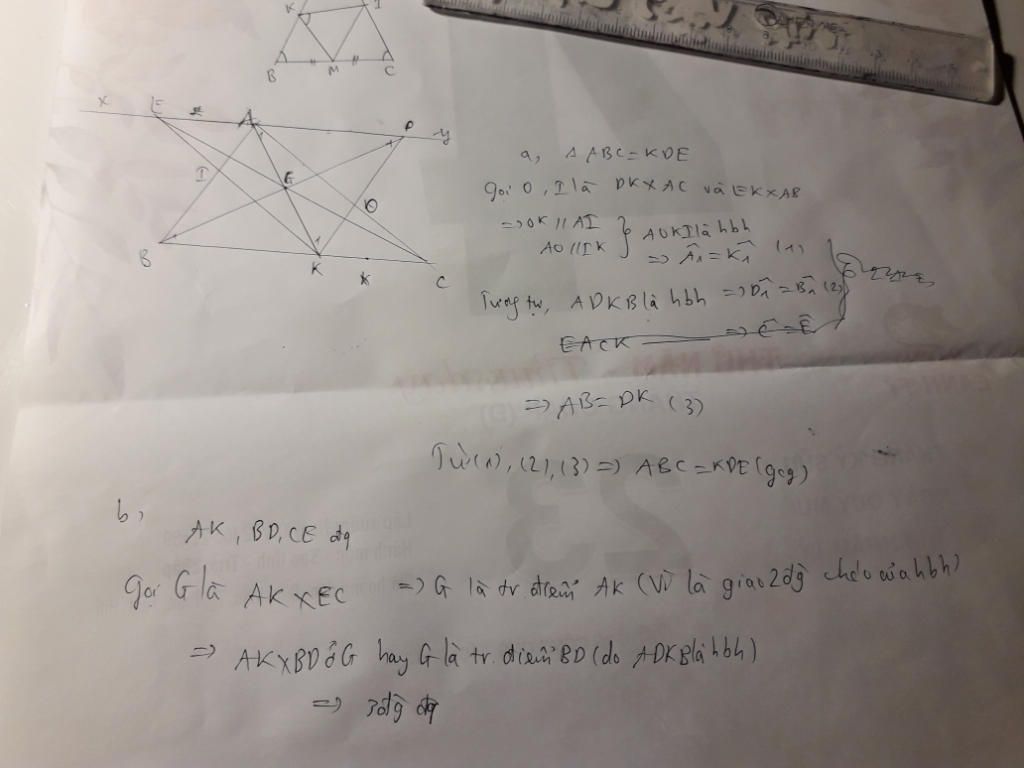 K I
B M C
x E A D y
I G O
B K C
a, Δ ABC = KDE
Gọi O, I là DK X AC và EK X AB
=> OK // AI
AO // IK } AOKI là hbh
=> Â1 = K̂1 (1)
Tương tự, ADKB là hbh => D̂1 = B̂1 (2)
EACK => Ĉ = Ê
=> AB = DK (3)
Từ (1), (2), (3) => ABC = KDE (gcg)
b,
AK, BD, CE đq
Gọi G là AK X EC => G là tr. điểm AK (Vì là giao 2 đg chéo của hbh)
=> AK X BD ở G hay G là tr. điểm BD (do ADKB là hbh)
=> 3 đg đq
23